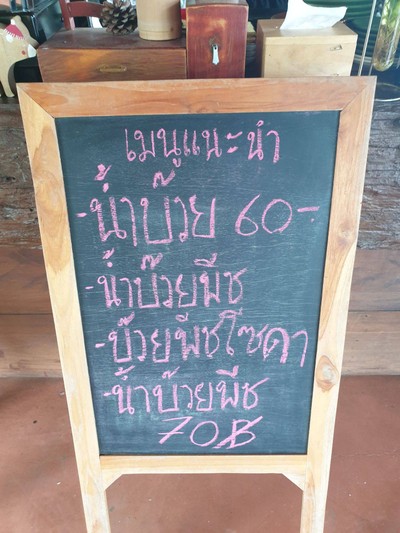 เมนูแนะนำ
-น้ำบ๊วย 60-
-น้ำบ๊วยพีช
-บ๊วยพีชโซดา
-น้ำบ๊วยพีช
70฿